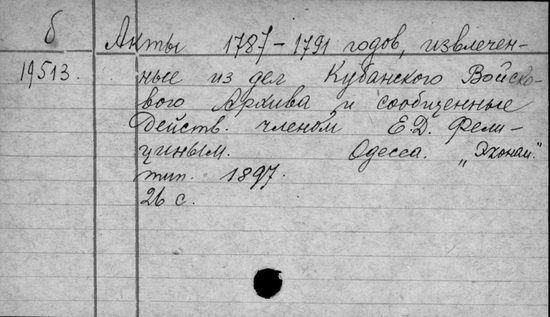 б Акты 1787-1791 годов, извлечен-
19513. ные из дел Кубанского Войско-
вого Архива и сообщенные
Действ. членом Е.Д. Фели-
цыным. Одесса. „Эконом."
тип. 1897.
26 с.